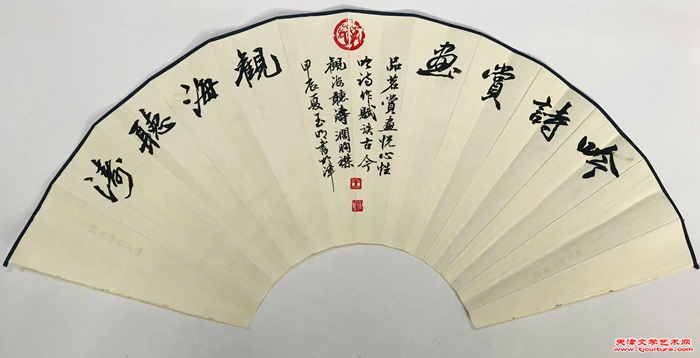 吟詩賞畫
品茗賞畫悦心性
吟詩作賦谈古今
觀海聽濤濶胸襟
甲辰夏玉明書於津
觀海聽濤
天津文学艺术网
www.tjculture.com